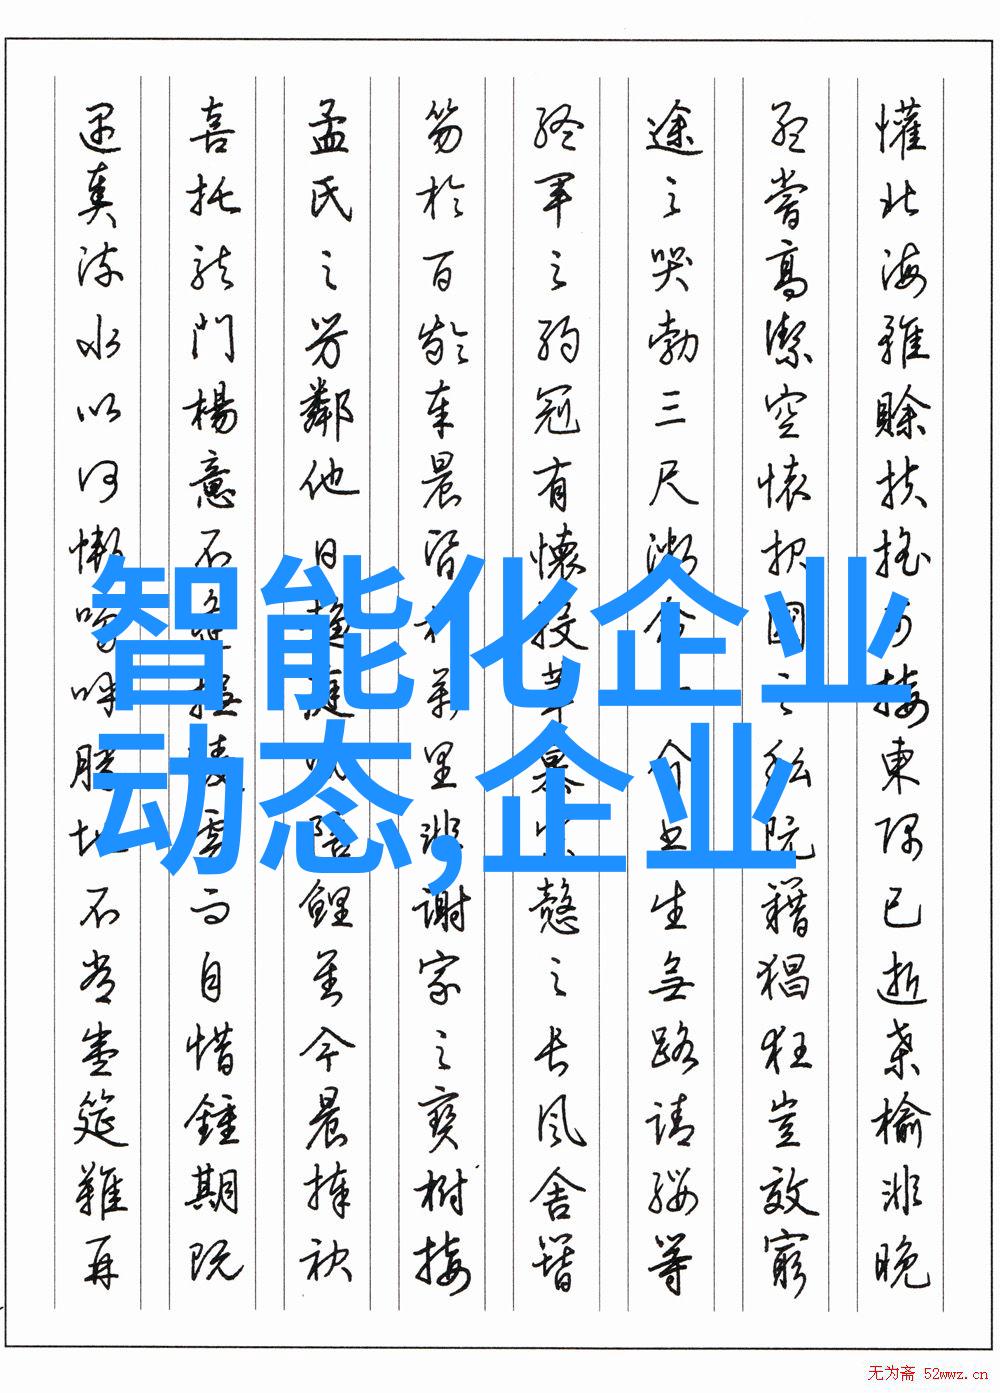 懽北海雖賒扶搖可接東隅已逝桑榆非晚
孟嘗高潔空懷報國之私阮籍猖狂豈效窮
途之哭勃三尺微命一介書生無路請纓等
終軍之弱冠有懷投筆慕宗愨之長風舍簪
笏於百齡奉晨昏於萬里非謝家之寶樹接
孟氏之芳鄰他日趨庭叨陪鯉對今晨捧袂
喜托龍門楊意不逢撫凌雲而自惜鍾期既
遇奏流水以何慚嗚呼勝地不常盛筵難再
智能化企业
动态,企业
无为斋 52wwz.cn